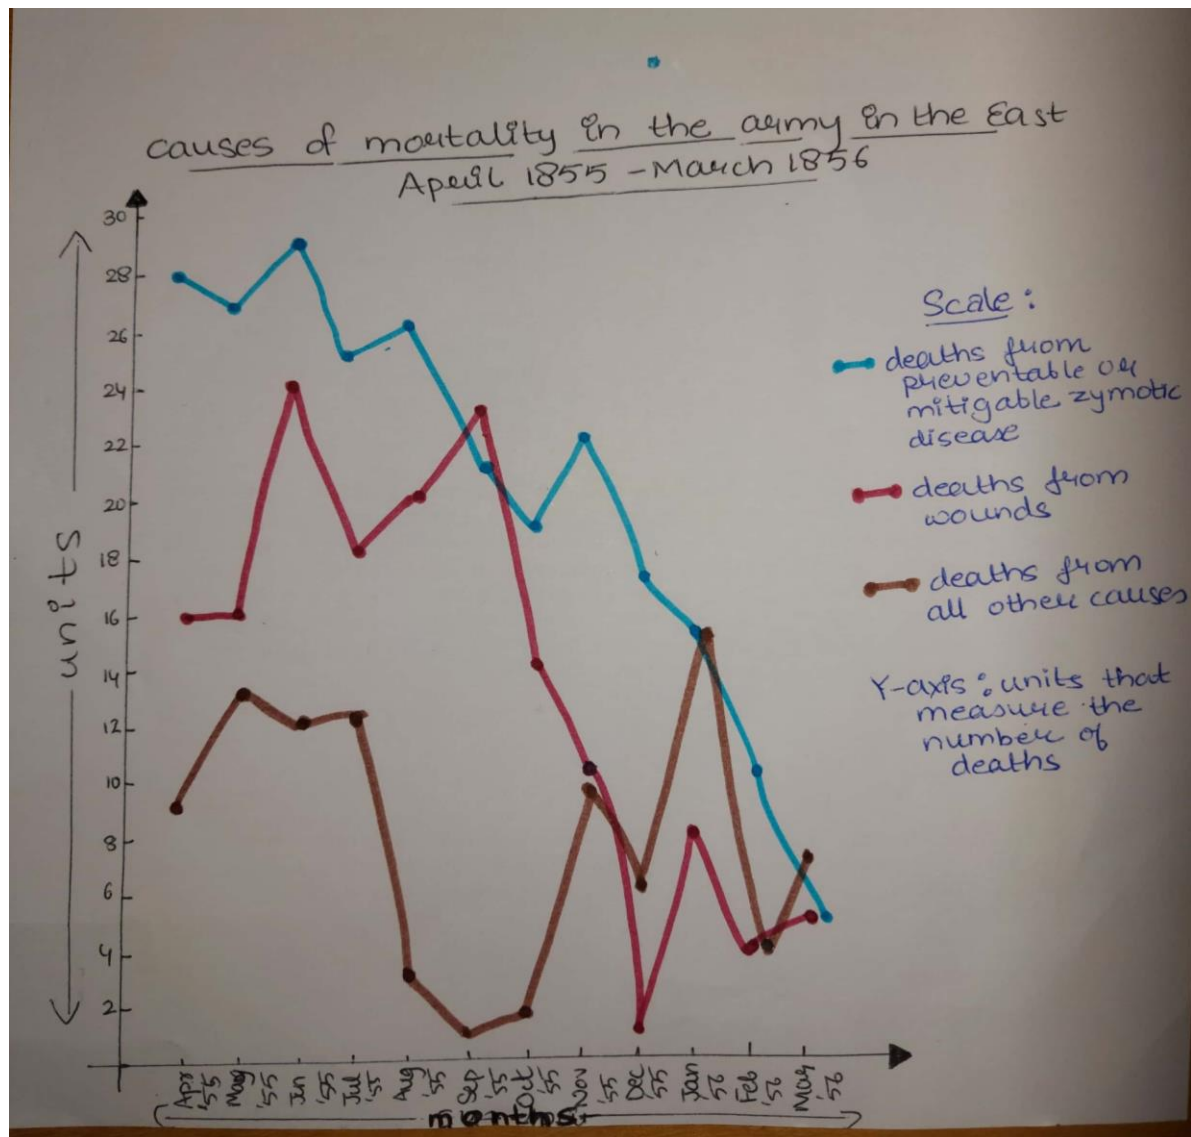 causes of mortality in the army in the East
April 1855 – March 1856
30
28
26
24
22
20
18
16
14
12
10
8
6
4
2
units
Scale :
deaths from
preventable or
mitigable zymotic
disease
deaths from
wounds
deaths from
all other causes
Y-axis : units that
measure the
number of
deaths
Apr '55
May '55
Jun '55
Jul '55
Aug '55
Sep '55
Oct '55
Nov '55
Dec '55
Jan '56
Feb '56
Mar '56
months